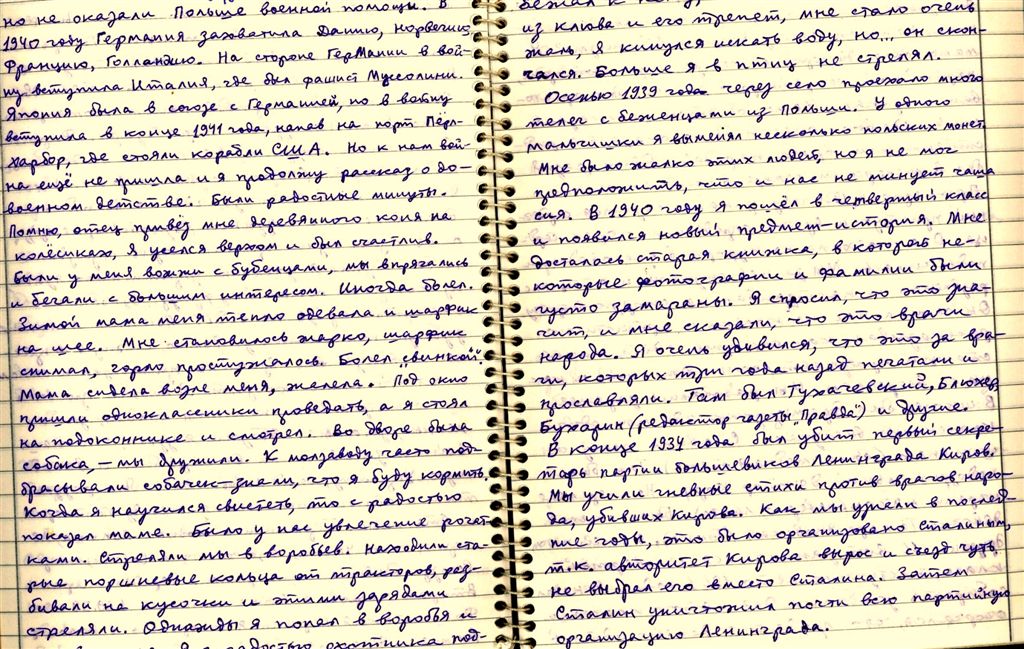 но не оказали Польше военной помощи. В
1940 году Германия захватила Данию, Норвегию,
Францию, Голландию. На стороне Германии в вой-
ну вступила Италия, где был фашист Муссолини.
Япония была в союзе с Германией, но в войну
вступила в конце 1941 года, напав на порт Пёрл-
Харбор, где стояли корабли США. Но к нам вой-
на ещё не пришла и я продолжу рассказ о до-
военном детстве. Были радостные минуты.
Помню, отец привёз мне деревянного коня на
колёсиках, я уселся верхом и был счастлив.
Были у меня вожжи с бубенцами, мы впрягались
и бегали с большим интересом. Иногда болел.
Зимой мама меня тепло одевала и шарфик
на шее. Мне становилось жарко, шарфик
снимал, горло простужалось. Болел „свинкой".
Мама сидела возле меня, жалела. Под окно
пришли одноклассники проведать, а я стоял
на подоконнике и смотрел. Во дворе была
собака, – мы дружили. К молзаводу часто под-
брасывали собачек – знали, что я буду кормить.
Когда я научился свистеть, то с радостью
показал маме. Было у нас увлечение рогат-
ками. Стреляли мы в воробьев. Находили ста-
рые поршневые кольца от тракторов, раз-
бивали на кусочки и этими зарядами
стреляли. Однажды я попал в воробья и
радостью охотника под-
бежал к
из клюва и его трепет, мне стало очень
жаль, я кинулся искать воду, но... он скон-
чался. Больше я в птиц не стрелял.
Осенью 1939 года через село проехало много
телег с беженцами из Польши. У одного
мальчишки я выменял несколько польских монет.
Мне было жалко этих людей, но я не мог
предположить, что и нас не минует чаша
сия. В 1940 году я пошёл в четвертый класс
и появился новый предмет – история. Мне
досталась старая книжка, в которой не-
которые фотографии и фамилии были
густо замараны. Я спросил, что это зна-
чит, и мне сказали, что это враги
народа. Я очень удивился, что это за вра-
ги, которых три года назад печатали и
прославляли. Там был Тухачевский, Блюхер,
Бухарин (редактор газеты „Правда") и другие.
В конце 1934 года был убит первый секре-
тарь партии большевиков Ленинграда Киров.
Мы учили гневные стихи против врагов наро-
да, убивших Кирова. Как мы узнали в послед-
ние годы, это было организовано Сталиным,
т.к. авторитет Кирова вырос и съезд чуть
не выбрал его вместо Сталина. Затем
Сталин уничтожил почти всю партийную
организацию Ленинграда.